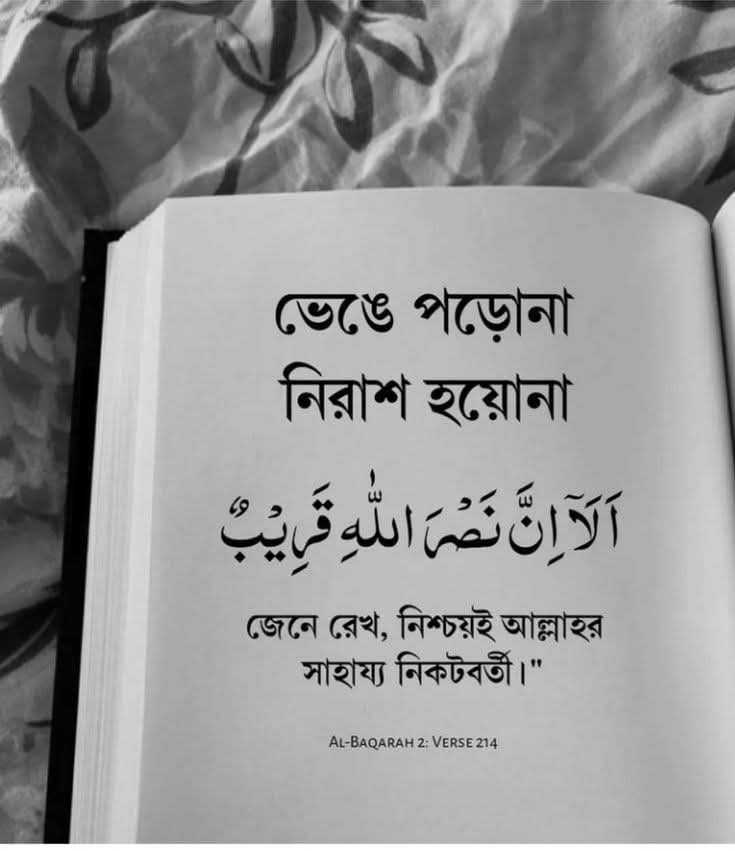 ভেঙে পড়োনা
নিরাশ হয়োনা
اَلَاۤ اِنَّ نَصْرَ اللّٰهِ قَرِیْبٌ
জেনে রেখ, নিশ্চয়ই আল্লাহর
সাহায্য নিকটবর্তী।"
AL-BAQARAH 2: VERSE 214